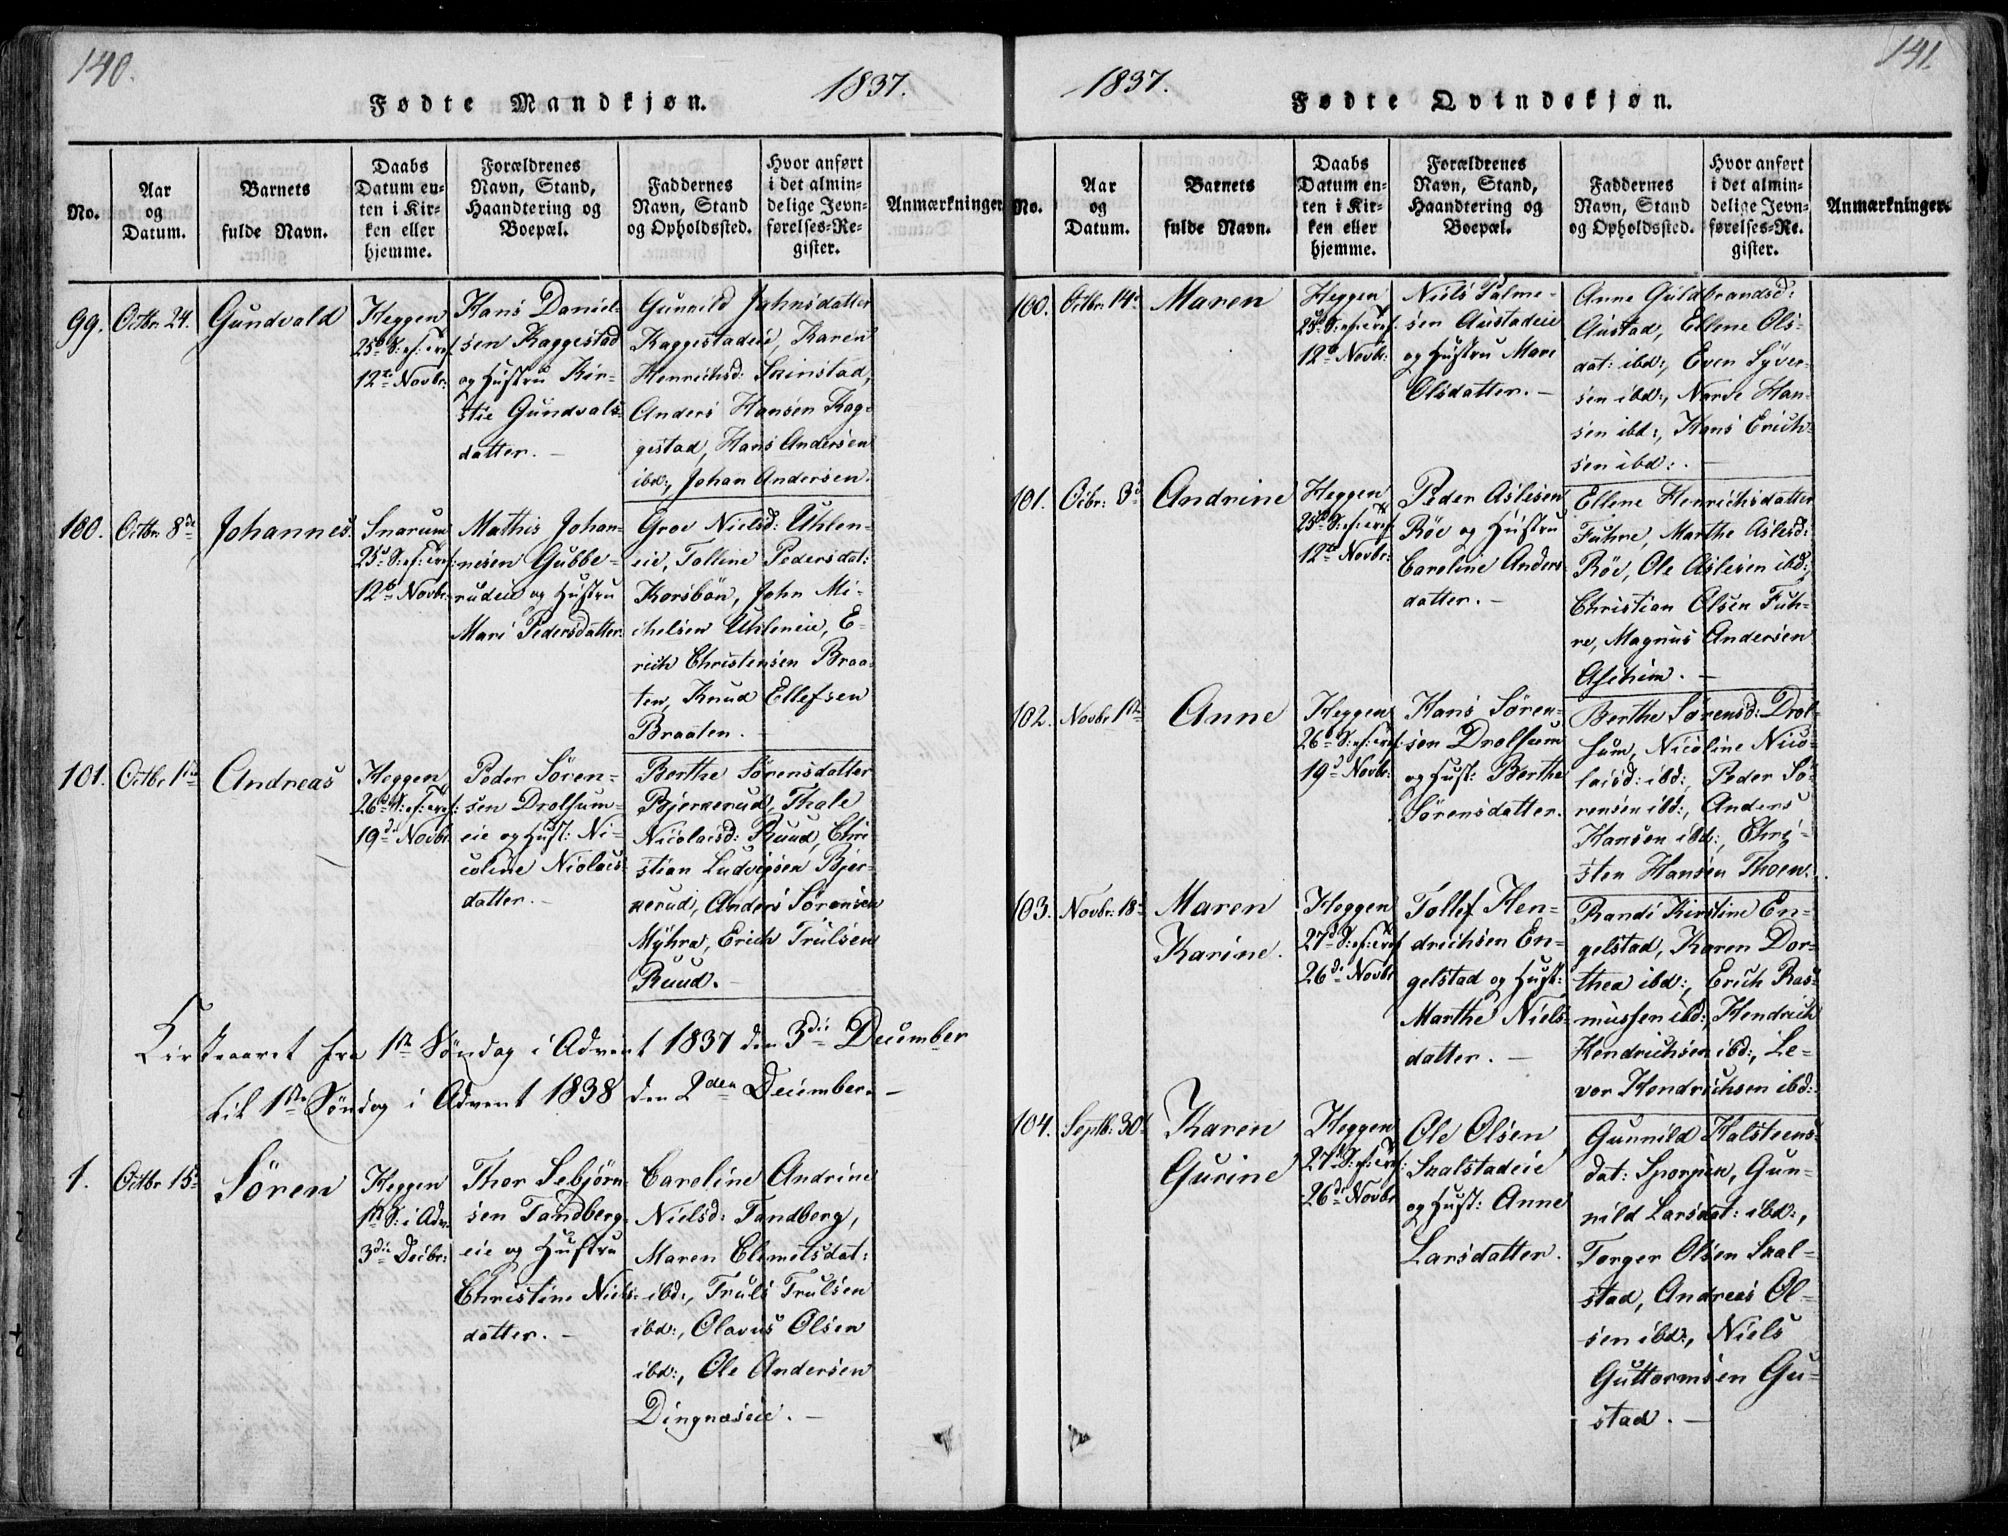 140.
Fødte Mandkjøn.
1837.
No.
Aar
og
Datum.
Barnets
fulde Navn.
Daabs
Datum en-
ten i Kir-
ken eller
hjemme.
Forældrenes
Navn, Stand,
Haandtering og
Boepæl.
Faddernes
Navn, Stand
og Opholdssted.
Hvor anført
i det almin-
delige Jevn-
førelses-Re-
gister.
Anmærkninger
99.
Octbr 24.
Gundvald
Heggen
25d S: ef: Tref:
12te Novbr:
Hans Daniel-
sen Kaggestad
og Hustru Kir-
stie Gundvals-
datter. —
Gunnild Johnsdatter
Kaggestadeie, Karen
Henrichsd: Skinstad,
Anders Hansen Kag-
gestad, Hans Andersen
ibd:, Johan Andersen.
100.
Octbr 8de
Johannes.
Snarum
25d S: ef: Tref:
12te Novbr:
Mathis Johan-
nesen Gubbe-
rudeie og Hustru
Mari Pedersdatter.
Groe Nielsd: Uhlen-
eie, Tolline Pedersdat:
Korsbøn, John Mi-
chelsen Uhleneie, E-
rich Christensen Braa-
ten, Knud Ellefsen
Braaten.
101.
Octbr 1ste
Andreas
Heggen
26d S: ef: Tref:
19de Novbr.
Peder Søren-
sen Drolsum-
eie og Hust: Ni-
coline Nicolais-
datter. —
Berthe Sørensdatter
Bjerkerud, Thale
Nicolaisd: Ruud, Chri-
stian Ludvigsen Bjer-
kerud, Anders Sørensen
Myhra, Erich Trulsen
Ruud. —
Kirkeaaret fra 1ste Søndag i Advent 1837 den 3die December
til 1ste Søndag i Advent 1838 den 2den December. —
1.
Octbr 15de
Søren
Heggen
1ste S: i Adv:
3die Decbr:
Thor Sebjørn-
sen Tandberg-
eie og Hustru
Christine Niels-
datter. —
Caroline Andrine
Nielsd: Tandberg,
Maren Clemetsdat:
ibd:, Truls Trulsen
ibd:, Olavus Olsen
ibd:, Ole Andersen
Dingnæseie. —
141.
1837.
Fødte Qvindekjøn.
No.
Aar
og
Datum.
Barnets
fulde Navn.
Daabs
Datum en-
ten i Kir-
ken eller
hjemme.
Forældrenes
Navn, Stand,
Haandtering og
Boepæl.
Faddernes
Navn, Stand
og Opholdssted.
Hvor anført
i det almin-
delige Jevn-
førelses-Re-
gister.
Anmærkninger.
100.
Octbr. 14de
Maren
Heggen
25d S: ef: Tref:
12te Novbr:
Niels Palme-
sen Austadeie
og Hustru Mari
Olsdatter. —
Anne Guldbrandsd:
Austad, Ellene Ols-
dat: ibd:, Even Syver-
sen ibd:, Narve Han-
sen ibd:, Hans Erich-
sen ibd:. —
101.
Ocbr: 3de
Andrine
Heggen
25d S: ef: Tref:
12te Novbr:
Peder Aslesen
Röe og Hustru
Caroline Anders-
datter. —
Ellene Henrichsdatter
Fuhre, Marthe Aslesd:
Röe, Ole Aslesen ibd:,
Christian Olsen Fuh-
re, Magnus Andersen
Aschim. —
102.
Novbr 1ste
Anne
Heggen
26d S: ef: Tref:
19d Novbr:
Hans Søren-
sen Drolsum
og Hust: Berthe
Sørensdatter.
Berthe Sørensd: Drol-
sum, Nicoline Nico-
laisd: ibd:, Peder Sö-
rensen ibd:, Anders
Hansen ibd:, Chri-
sten Hansen Thoen.
103.
Novbr: 18de
Maren
Karine.
Heggen
27d S: ef: Tref
26de Novbr
Tollef Hen-
drichsen En-
gelstad og Hust:
Marthe Niels-
datter. —
Randi Kirstine En-
gelstad, Karen Dor-
thea ibd:, Erich Ras-
mussen ibd:, Hendrich
Hendrichsen ibd:, Le-
vor Hendrichsen ibd:.
104.
Septb: 30te
Karen
Gurine
Heggen
27d S: ef: Tref:
26de Novbr
Ole Olsen
Saalstadeie
og Hust: Anne
Larsdatter.
Gunnild Halsteens-
dat: Sporpin, Gun-
nild Larsdat: ibd:,
Torger Olsen Saal-
stad, Andreas Ol-
sen ibd:, Niels
Guttormsen Gu-
stad. —